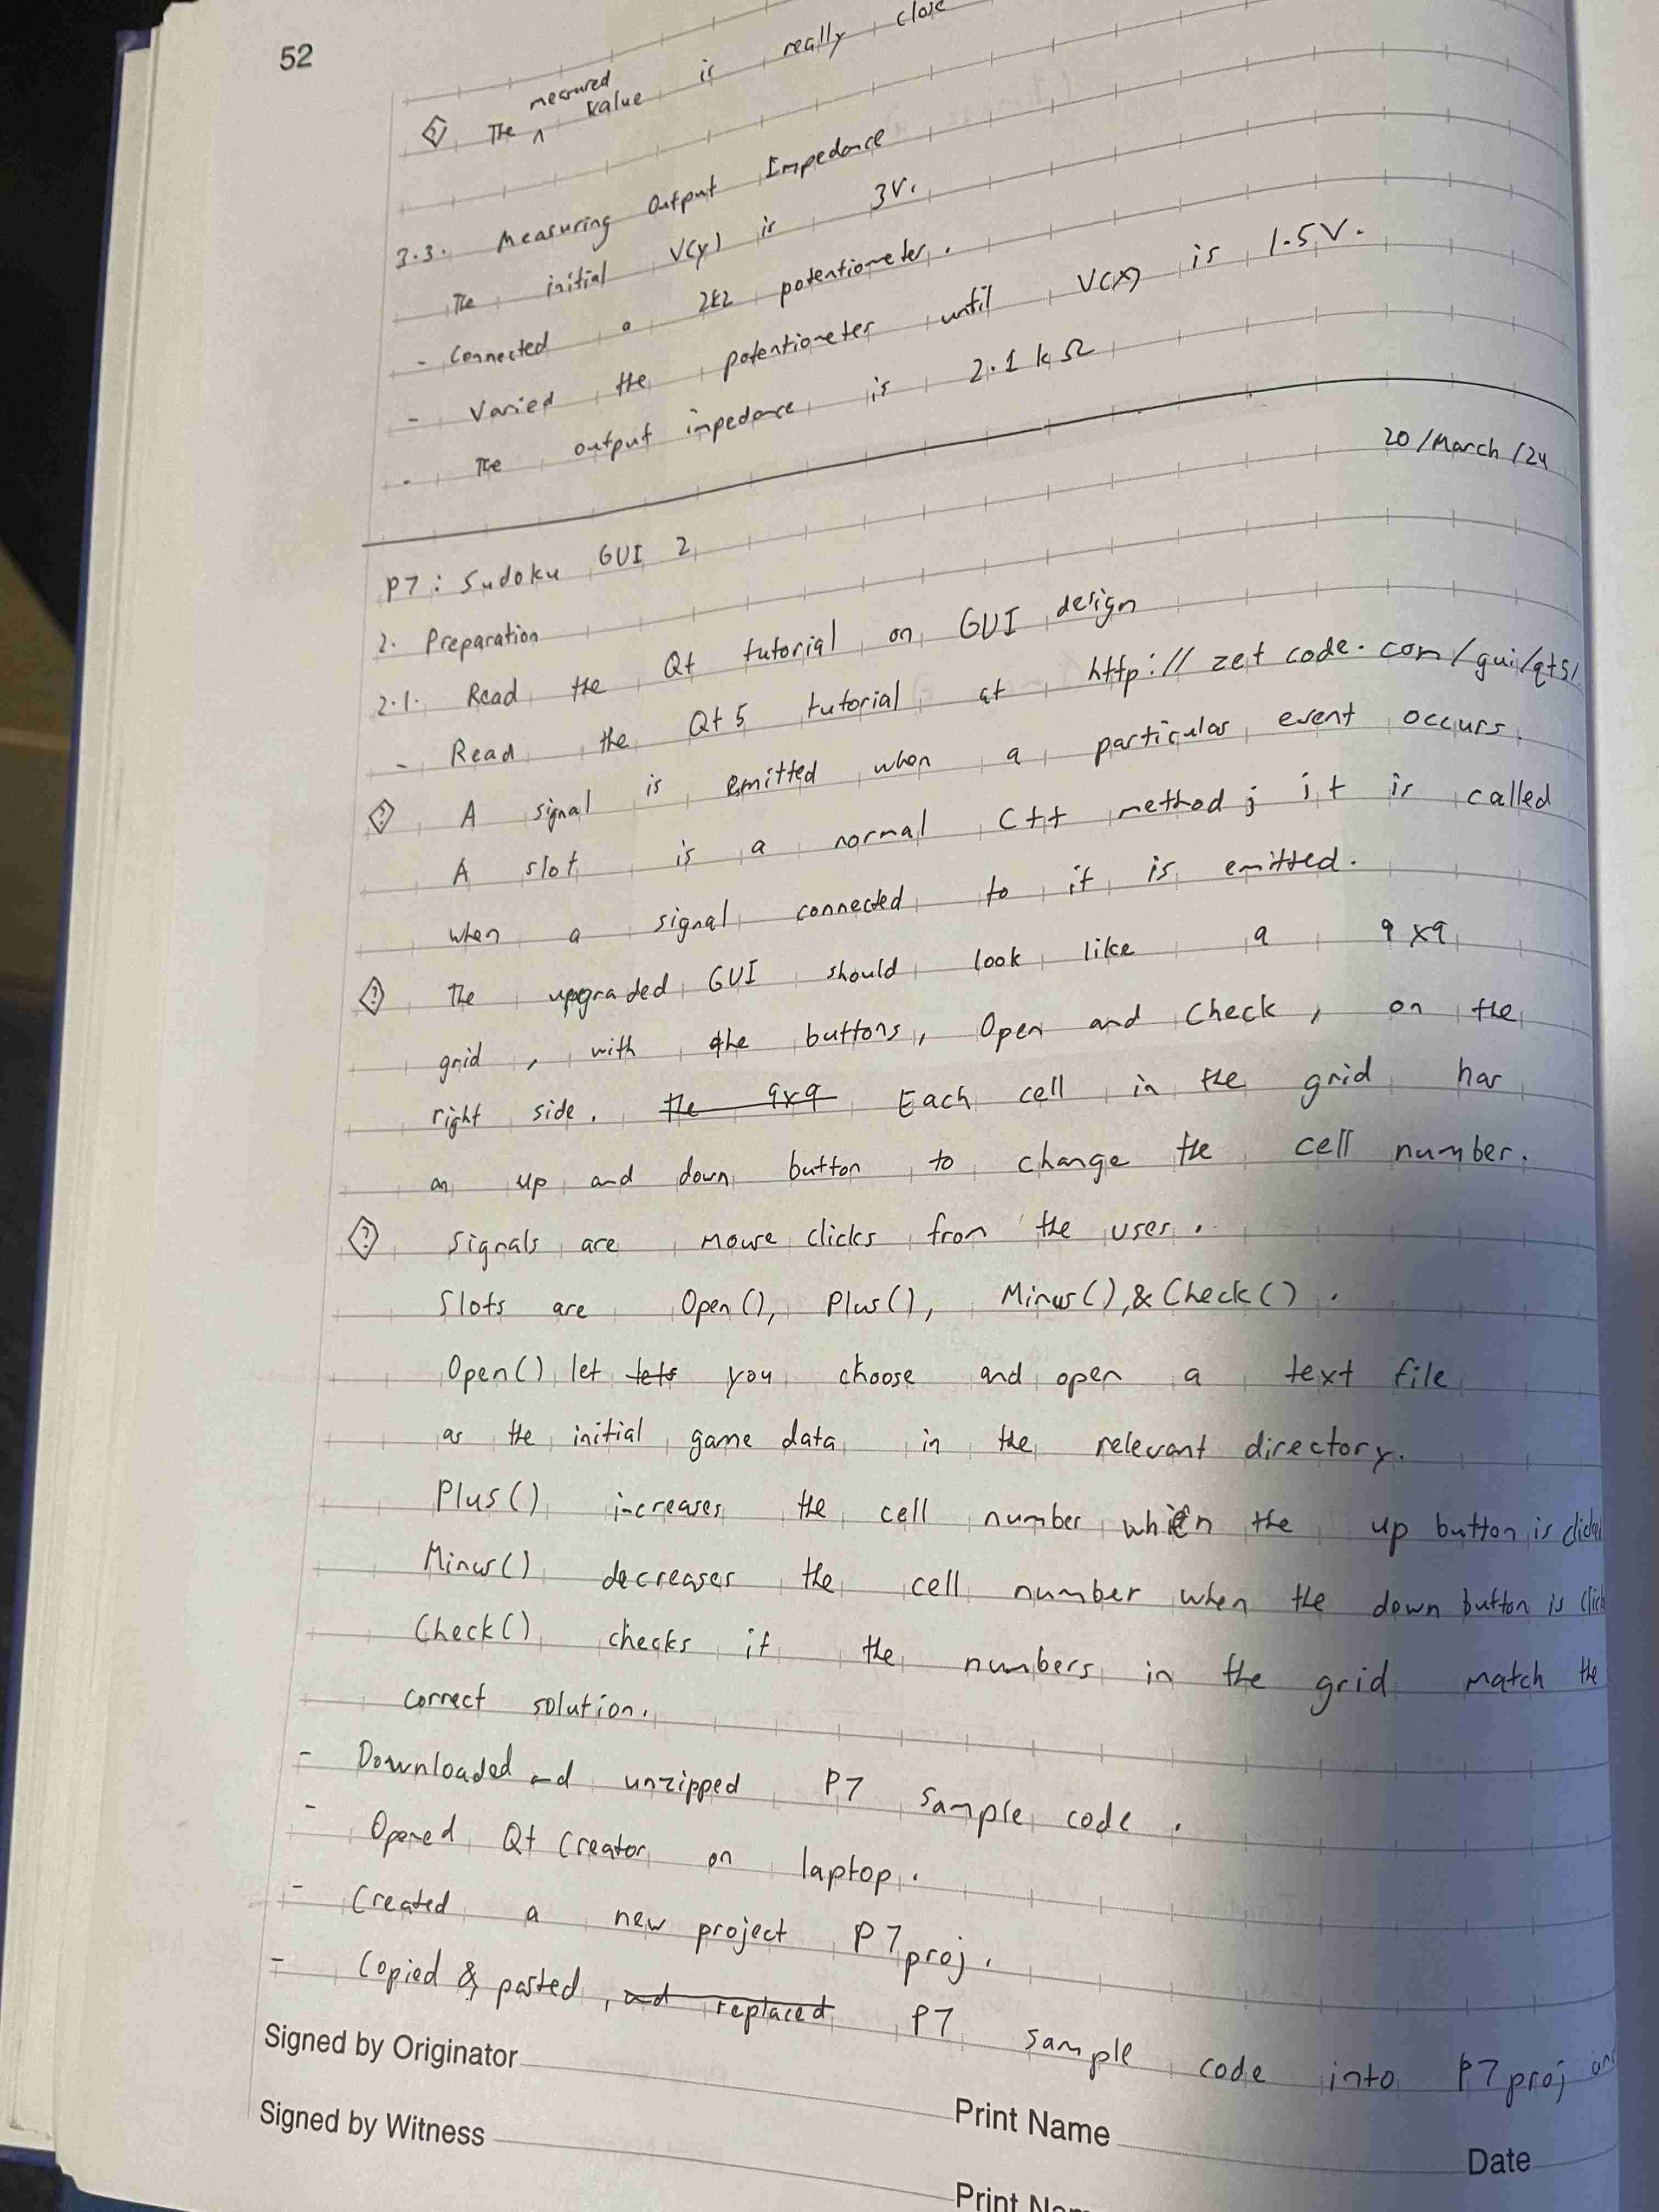 52
measured
The ^ value is really close
3.3. Measuring Output Impedance
The initial V(y) is 3V.
- Connected a 2k2 potentiometer.
- Varied the potentiometer until V(x) is 1.5V.
- The output impedance is 2.1 kΩ
20/March/24
P7: Sudoku GUI 2
2. Preparation
2.1. Read the Qt tutorial on GUI design
- Read the Qt5 tutorial at http://zetcode.com/gui/qt5/
? A signal is emitted when a particular event occurs.
A slot is a normal C++ method; it is called
when a signal connected to it is emitted.
? The upgraded GUI should look like a 9x9
grid, with the buttons, Open and Check, on the
right side. the 9x9 Each cell in the grid has
an up and down button to change the cell number.
? Signals are mouse clicks from the user.
Slots are Open(), Plus(), Minus(),& Check().
Open() let lets you choose and open a text file
as the initial game data in the relevant directory.
Plus() increases the cell number when the up button is
Minus() decreases the cell number when the down button is
Check() checks if the numbers in the grid match the
correct solution.
- Downloaded and unzipped P7 sample code.
- Opened Qt Creator on laptop.
- Created a new project P7proj.
- Copied & pasted, and replaced P7 sample code into P7proj
Signed by Originator
Print Name
Date
Signed by Witness
Print